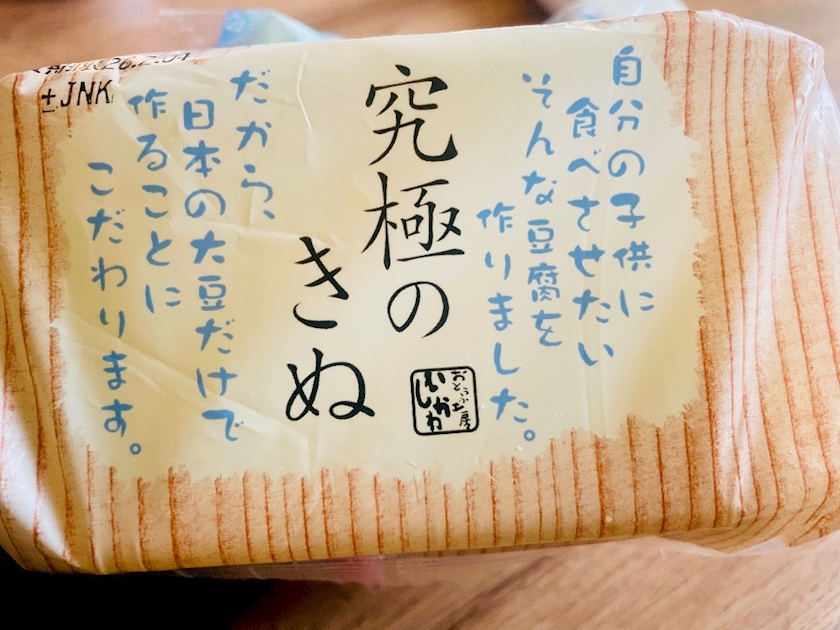 自分の子供に
食べさせたい
そんな豆腐を
作りました。
究極の
きぬ
おとうふ工房
いしかわ
だから、
日本の大豆だけで
作ることに
こだわります。
26.2.04
±JNK